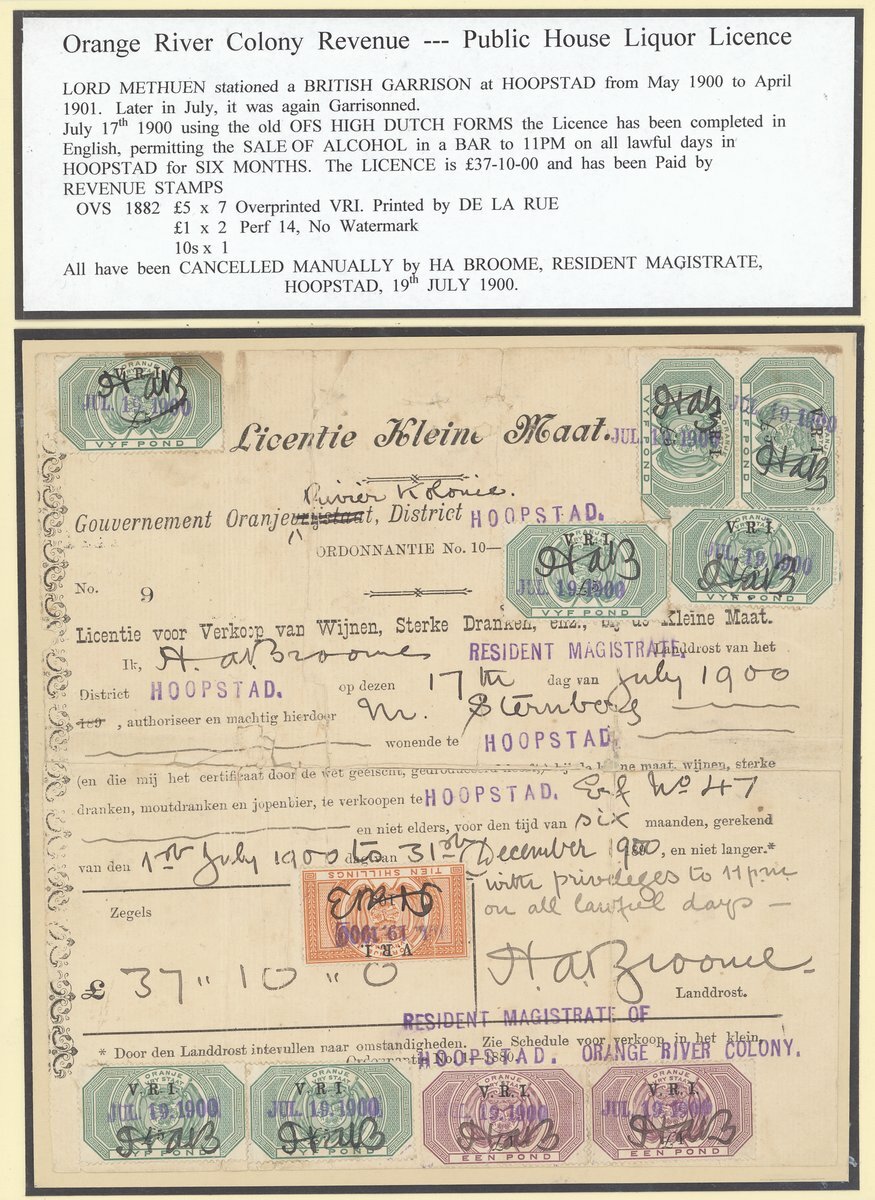 Orange River Colony Revenue --- Public House Liquor Licence
LORD METHUEN stationed a BRITISH GARRISON at HOOPSTAD from May 1900 to April
1901. Later in July, it was again Garrisonned.
July 17th 1900 using the old OFS HIGH DUTCH FORMS the Licence has been completed in
English, permitting the SALE OF ALCOHOL in a BAR to 11PM on all lawful days in
HOOPSTAD for SIX MONTHS. The LICENCE is £37-10-00 and has been Paid by
REVENUE STAMPS
OVS 1882 £5 x 7 Overprinted VRI. Printed by DE LA RUE
£1 x 2 Perf 14, No Watermark
10s x 1
All have been CANCELLED MANUALLY by HA BROOME, RESIDENT MAGISTRATE,
HOOPSTAD, 19th JULY 1900.
ORANJE
V.R.I.
HaB
JUL 19.1900
VYF POND
V.R.I.
HaB
JUL 19.1900
VYF POND
V.R.I.
HaB
JUL 19.1900
VYF POND
Licentie Kleine Maat.
Rivier Kolonie.
Gouvernement Oranjevrijstaat, District HOOPSTAD.
ORDONNANTIE No. 10—
V.R.I.
HaB
JUL 19.1900
VYF POND
V.R.I.
HaB
JUL 19.1900
VYF POND
No. 9
Licentie voor Verkoop van Wijnen, Sterke Dranken, enz., bij de Kleine Maat.
Ik, H. a. Broome RESIDENT MAGISTRATE. Landdrost van het
District HOOPSTAD. op dezen 17th dag van July 1900
189 , authoriseer en machtig hierdoor M. Sternberg
wonende te HOOPSTAD
(en die mij het certificaat door de wet geëischt, geproduceerd heeft) bij de kleine maat, wijnen, sterke
dranken, moutdranken en jopenbier, te verkoopen te HOOPSTAD. Erf No 47
en niet elders, voor den tijd van six maanden, gerekend
van den 1st July 1900 to dag van 31st December 1900, en niet langer.*
with privileges to 11 pm
on all lawful days —
Zegels
TIEN SHILLINGS
HaB
JUL 19.1900
V.R.I.
£ 37 " 10 " 0
H. a. Broome.
Landdrost.
RESIDENT MAGISTRATE OF
* Door den Landdrost intevullen naar omstandigheden. Zie Schedule voor verkoop in het klein,
HOOPSTAD. ORANGE RIVER COLONY.
ORANJE
V.R.I.
JUL 19.1900
HaB
VYF POND
ORANJE
V.R.I.
JUL 19.1900
HaB
VYF POND
ORANJE
V.R.I.
JUL 19.1900
HaB
EEN POND
ORANJE
V.R.I.
JUL 19.1900
HaB
EEN POND